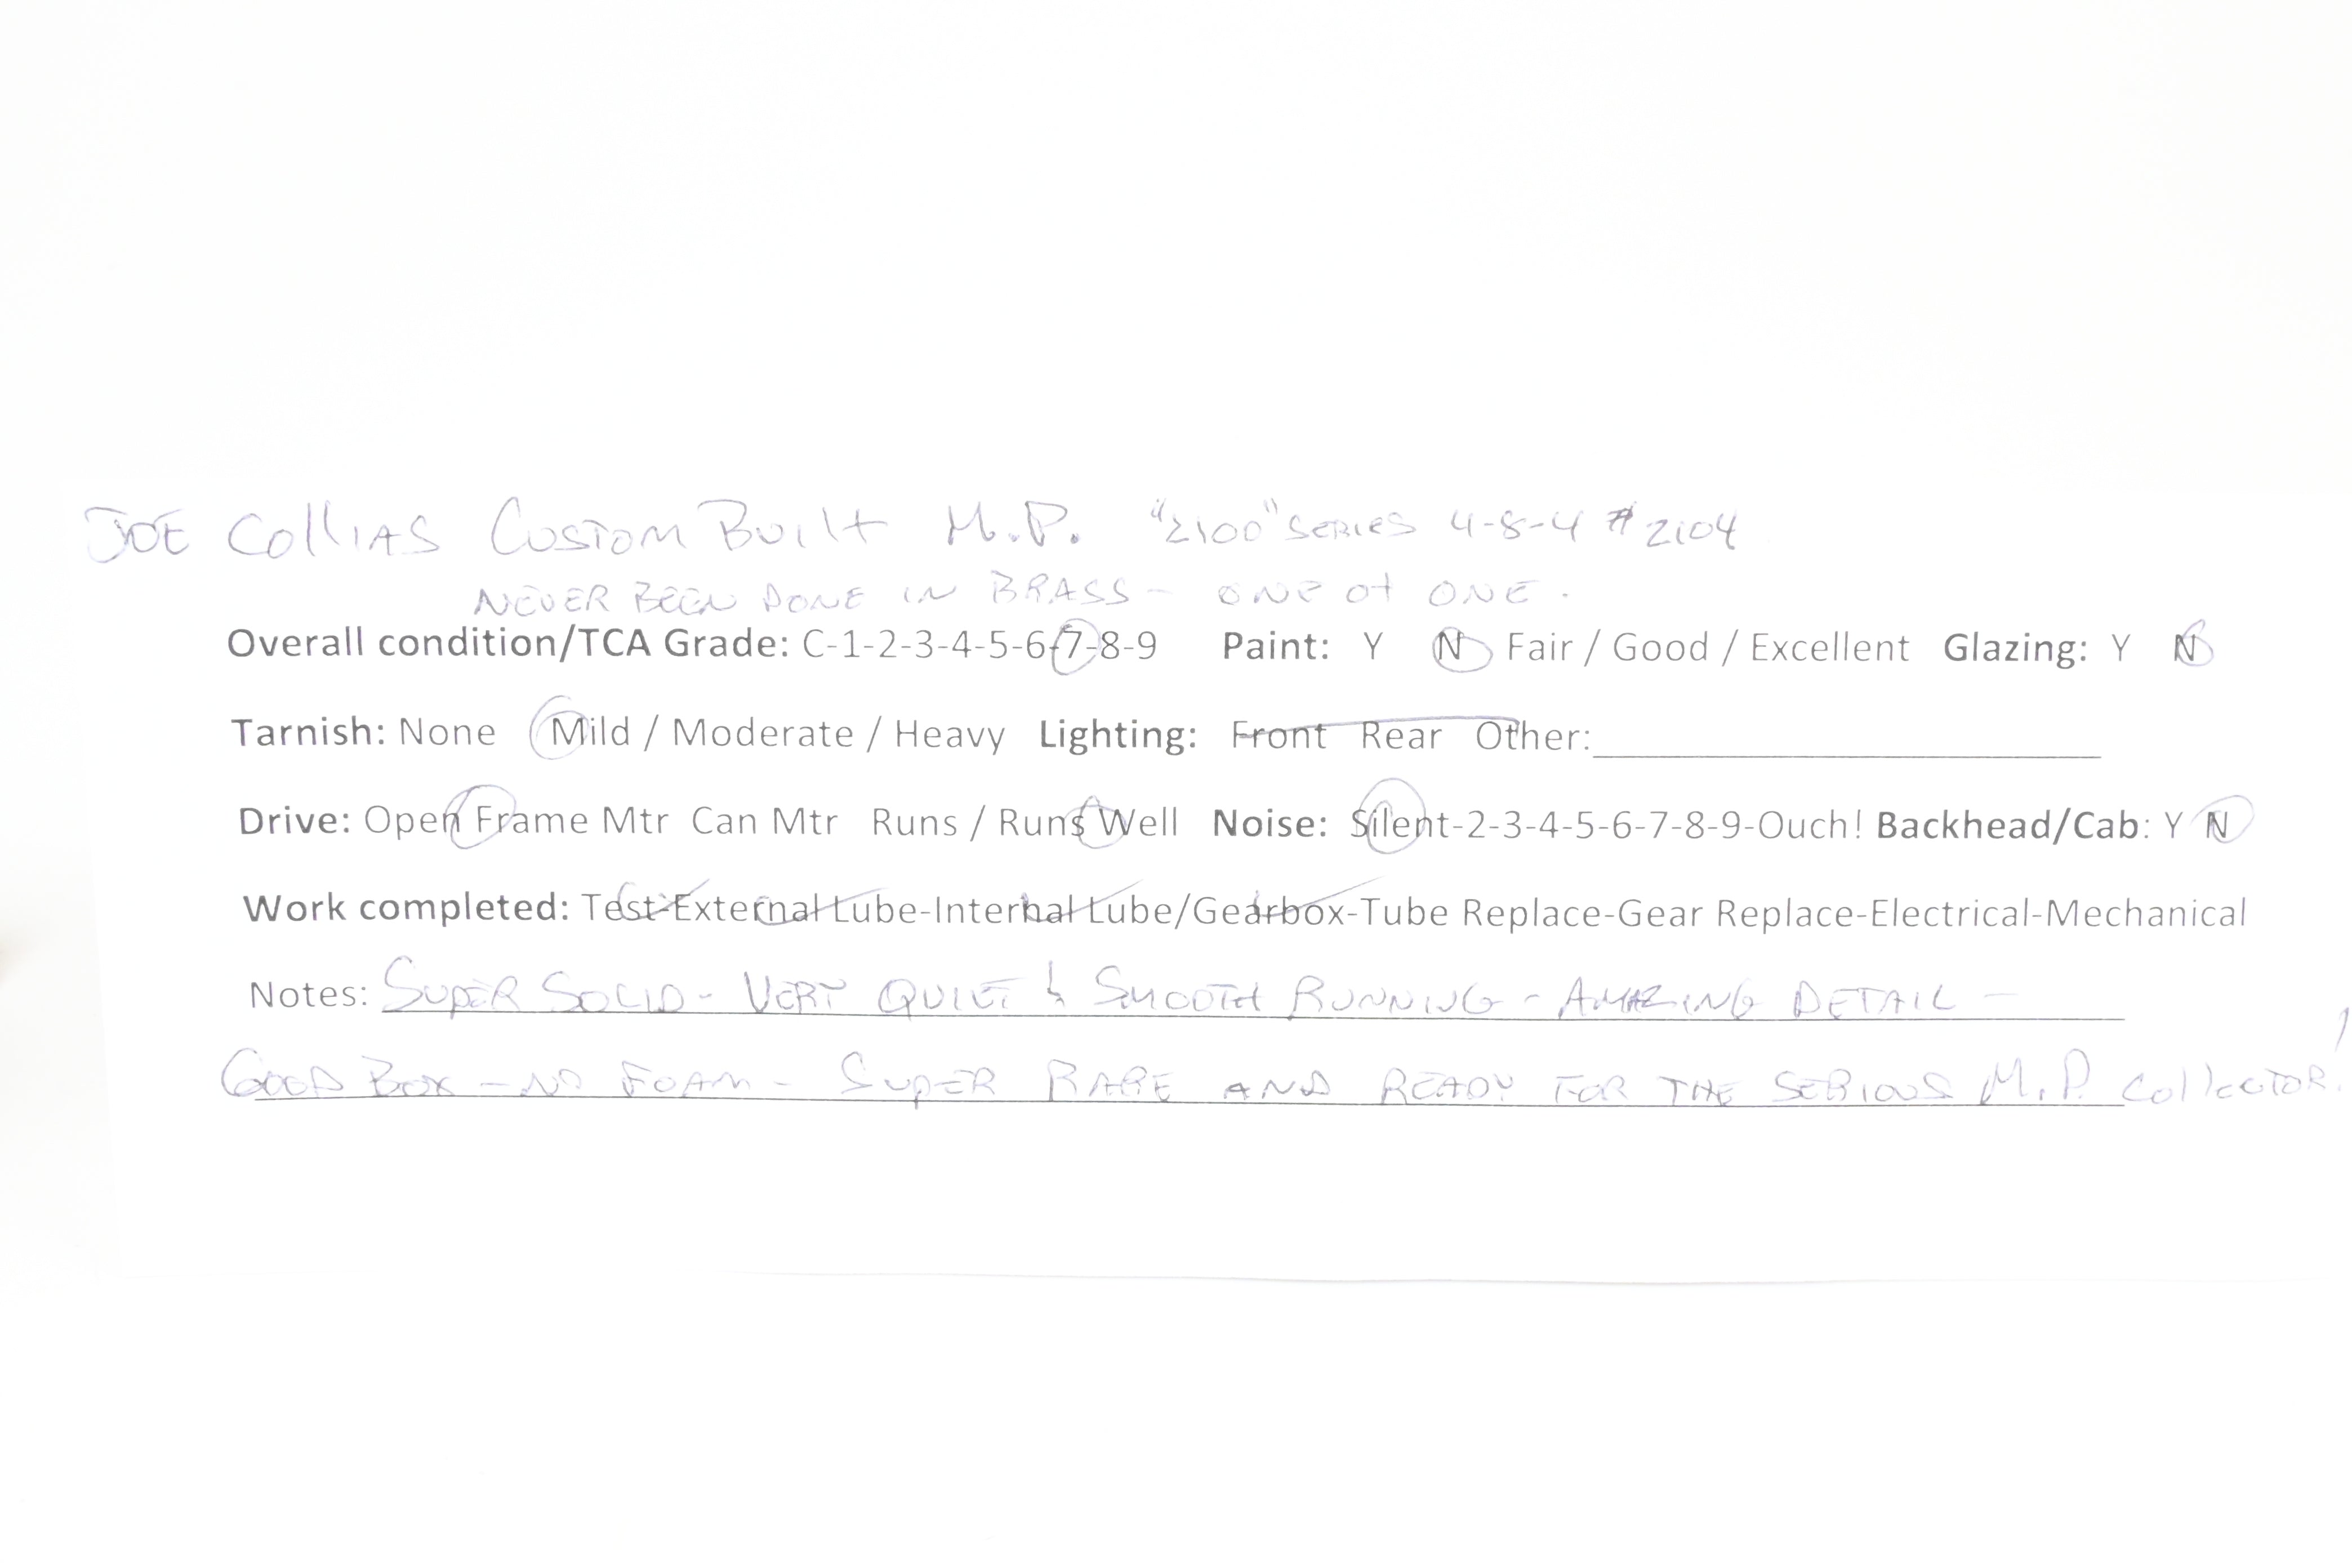 JOE COllIAS CUSTOM BUilt M.P. "2100" SERIES 4-8-4 #2104
NEVER BEEN DONE IN BRASS - ONE of ONE.
Overall condition/TCA Grade: C-1-2-3-4-5-6-7-8-9 Paint: Y N Fair / Good / Excellent Glazing: Y N
Tarnish: None Mild / Moderate / Heavy Lighting: Front Rear Other:
Drive: Open Frame Mtr Can Mtr Runs / Runs Well Noise: Silent-2-3-4-5-6-7-8-9-Ouch! Backhead/Cab: Y N
Work completed: Test-External Lube-Internal Lube/Gearbox-Tube Replace-Gear Replace-Electrical-Mechanical
Notes: SUPER SOLID - VERY QUIET & SMOOTH RUNNING - AMAZING DETAIL -
GOOD BOX - NO FOAM - SUPER RARE AND READY FOR THE SERIOUS M.P. COllECTOR!